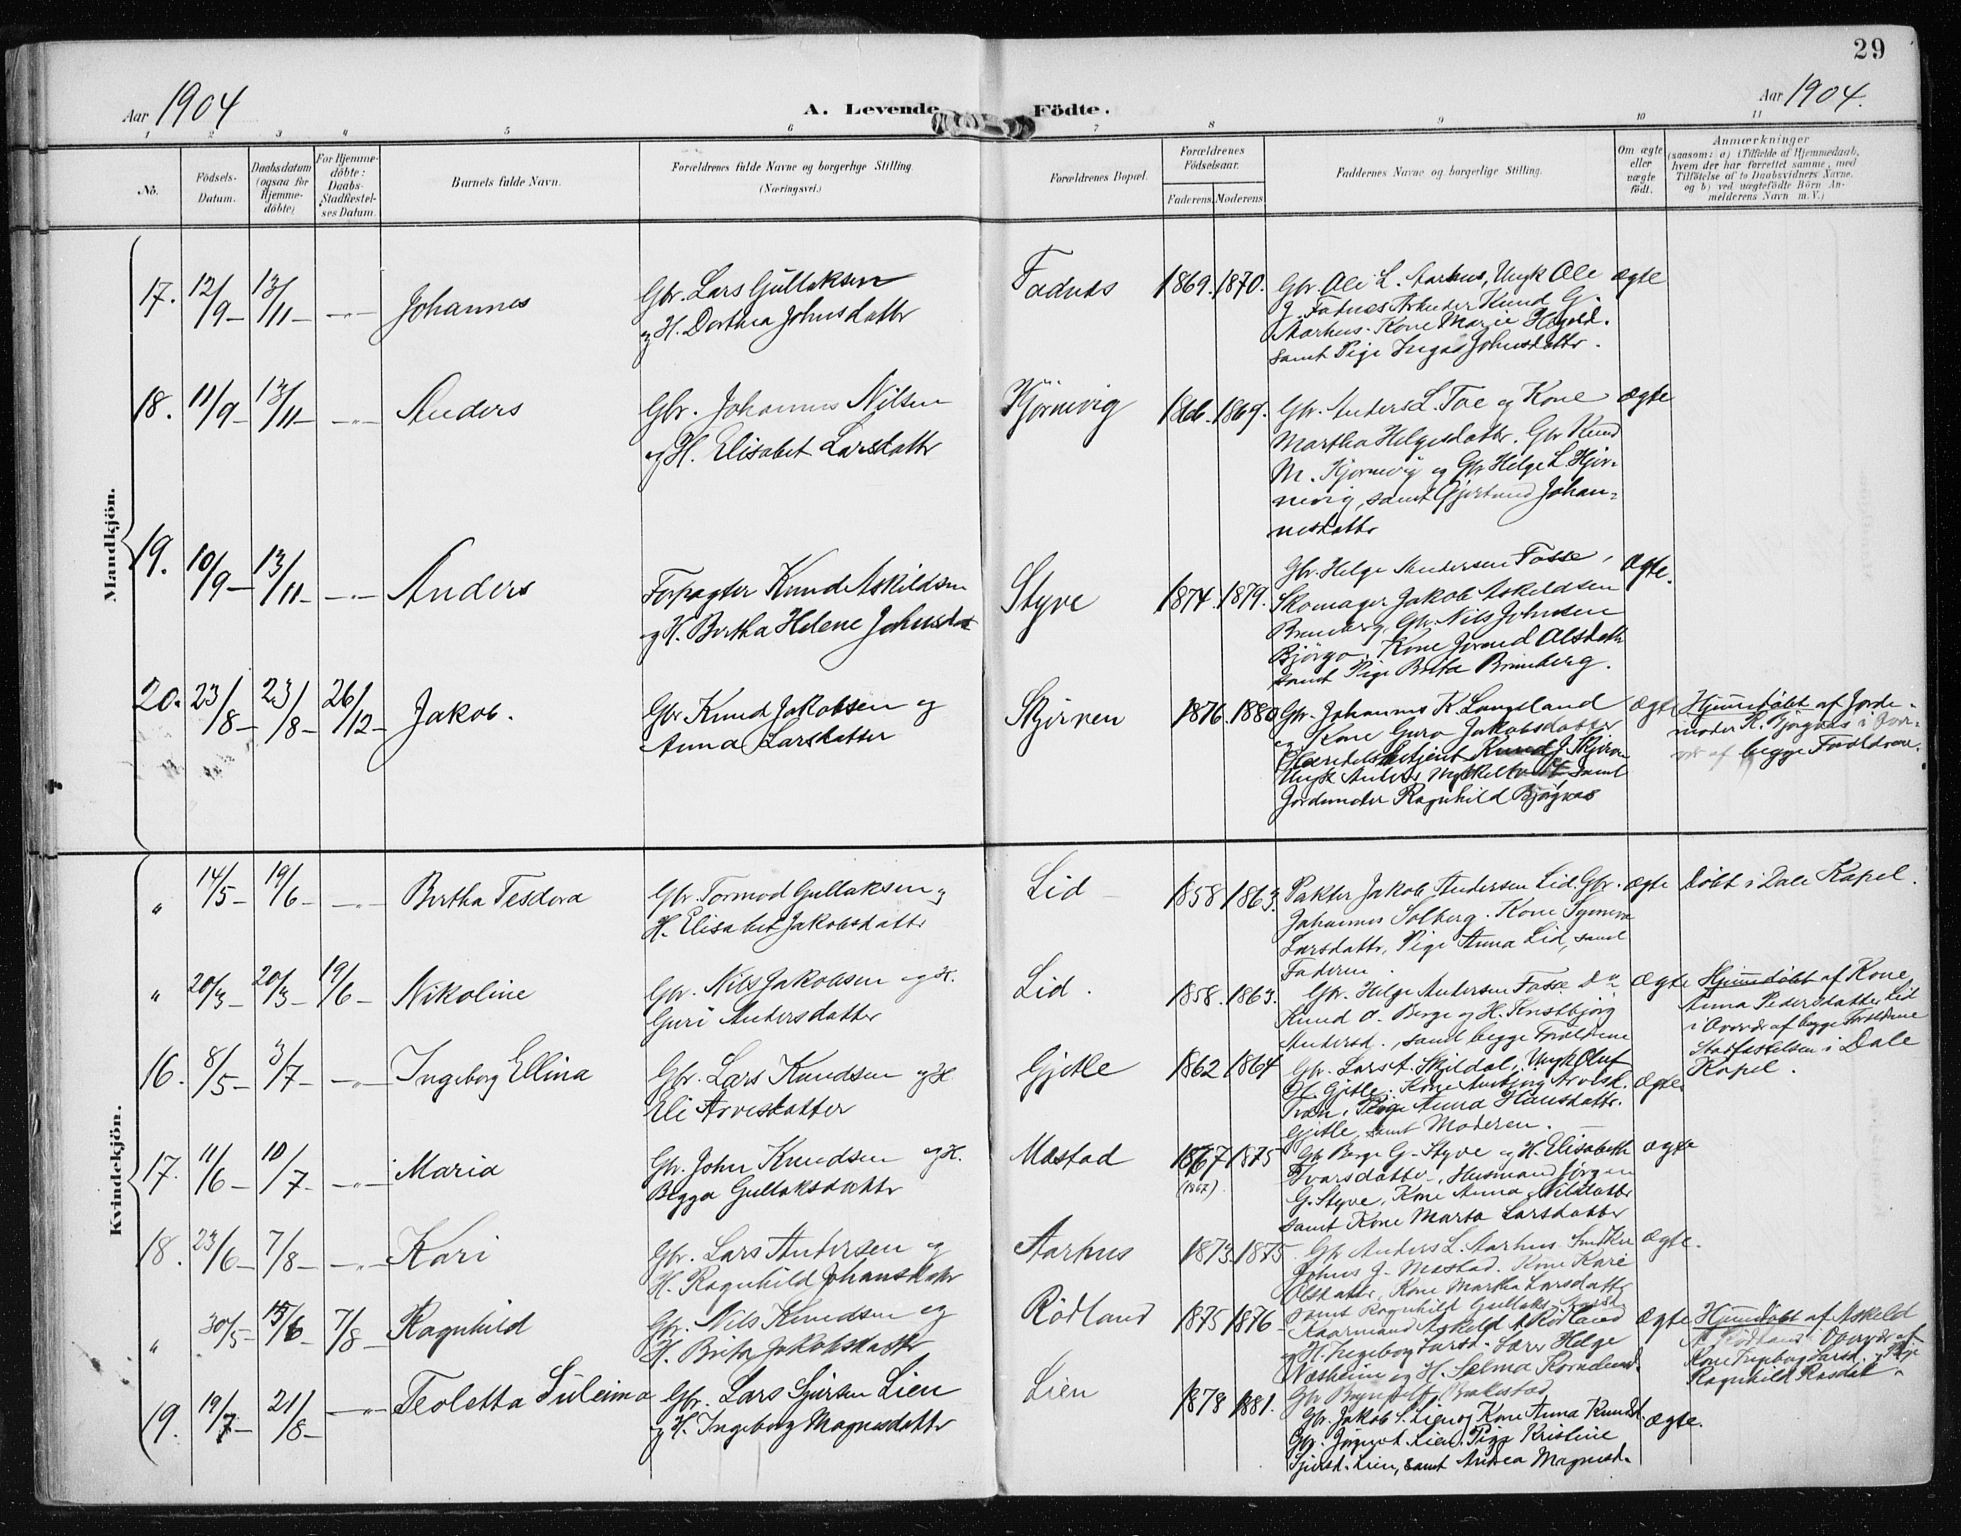 29
Aar 1904
A. Levende Födte.
Aar 1904.
1 2 3 4 5 6 7 8 9 10 11
No.
Födsels-Datum.
Daabsdatum (ogsaa for Hjemme-döbte)
For Hjemme-döbte: Daabs-Stadfæstel-ses Datum.
Barnets fulde Navn.
Forældrenes fulde Navne og borgerlige Stilling. (Næringsvei.)
Forældrenes Bopæl.
Forældrenes Födselsaar.
Faderens. Moderens.
Faddernes Navne og borgerlige Stilling.
Om ægte eller uægte födt.
Anmærkninger
(saasom: a) i Tilfælde af Hjemmedaab,
hvem der har forrettet samme, med
Tilföielse af to Daabsvidners Navne,
og b) ved uægtefödte Börn An-
melderens Navn m. V.)
Mandkjön.
17. 12/9 13/11 Johannes
Gbr. Lars Gullaksen
og H. Dorthea Johnsdatter
Fadnes 1869. 1870.
Gbr. Ole L. Aarhus, Ungk Ole
G. Fadnes Arbeider Knud G.
Aarhus. Kone Marie
samt Pige Inga Johnsdatter.
ægte
18. 11/9 13/11 Anders
Gbr. Johannes Nilsen
og H. Elisabet Larsdatter
Kjörnevig 1866. 1869.
Gbr. Anders L. Foe og Kone
Martha Helgesdatter. Gbr Knud
M. Kjörnevig og Gbr Helge L. Kjör-
nevig, samt Gjertrud Johan-
nesdatter
ægte
19. 10/9 13/11 Anders
Forpagter Knud Askildsen
og H. Bertha Helene Johnsdat
Styve 1874. 1879.
Gbr. Helge Andersen Fosse,
Skomager Jakob Askeldsen
Brunberg, Gbr. Nils Johnsen
Bjørgo, Kone Jorund Olsdatter
samt Pige Brita Brunberg.
ægte.
20. 23/8 23/8 26/12 Jakob.
Gbr Knud Jakobsen og
Anna Larsdatter
Skjørven 1876. 1880
Gbr. Johannes K. Langeland
og Kone Guro Jakobsdatter
Handelsbetjent Knud J. Skjörv
Ungk Anders samt
Jordemoder Ragnhild Bjørgaas
ægte
Hjemmedöbt af Jorde-
moder R. Bjørgaas i Over-
vær af begge Forældrene.
Kvindekjön.
" 14/5 19/6 Bertha Tesdora
Gbr. Tormod Gullaksen og
H. Elisabet Jakobsdatter
Lid 1858 1863.
Pakter Jakob Andersen Lid. Gbr.
Johannes Solberg. Kone Synneva
Larsdatter, Pige Anna Lid, samt
Faderen.
ægte
Döbt i Dale Kapel.
" 20/3 20/3 19/6 Nikoline
Gbr. Nils Jakobsen og H.
Guri Andersdatter
Lid. 1858. 1863.
Gbr. Helge Andersen Fosse Do
Knud O. Berge og H. Kristbjörg
Andersd., samt begge Forældrene
ægte
Hjemmedöbt af Kone
Anna Pedersdatter Lid
i Overvær af begge Forældrene
Stadfæstelsen i Dale
Kapel.
16. 8/5 3/7 Ingeborg Ellina
Gbr. Lars Knudsen og H.
Eli Arvesdatter
Gjetle 1862 1864
Gbr. Lars A. Skjeldal, Ungk Oluf
Gjetle. Kone
Pige Anna Hansdatter
Gjetle, samt Moderen.
ægte
17. 11/6 10/7 Maria
Gbr. John Knudsen og H.
Begga Gullaksdatter
Mæstad 1867 1875
(1867)
Gbr Berge G. Styve og H. Elisabeth
Ivarsdatter, Husmand Jørgen
G. Styve, Kone Anna Nilsdatter
samt Kone Marta Larsdatter
ægte
18. 23/6 7/8 Kari
Gbr. Lars Andersen og
H. Ragnhild Johansdatter
Aarhus 1873. 1875.
Gbr Anders L. Aarhus. Snedker
Johns J. Mæstad. Kone Kari
Olsdatter, Kone Martha Larsdatter
samt Ragnhild Gullaksd. Aarhus
ægte.
" 30/5 15/6 7/8 Ragnhild
Gbr. Nils Knudsen og
H. Brita Jakobsdatter
Rödland 1875 1876
Kaarmand Askeld A Rödland
og H. Ingeborg Larsd. Lærer Helge
Næsheim og H. Selma
Gbr
ægte
Hjemmedöbt af Askeld
A Rödland i Overvær af
Kone Ingeborg Larsd. og Pige
Ragnhild
19. 19/7 21/8 Teoletta Suleima
Gbr. Lars Sjursen Lien
og H. Ingeborg Magnesdatter
Lien 1878 1881.
Gbr. Jakob S. Lien og Kone Anna Knudsd
Gbr. Lien, Pige Kristine
Sjursd. Lien, samt Andrea Magnesd.
ægte.